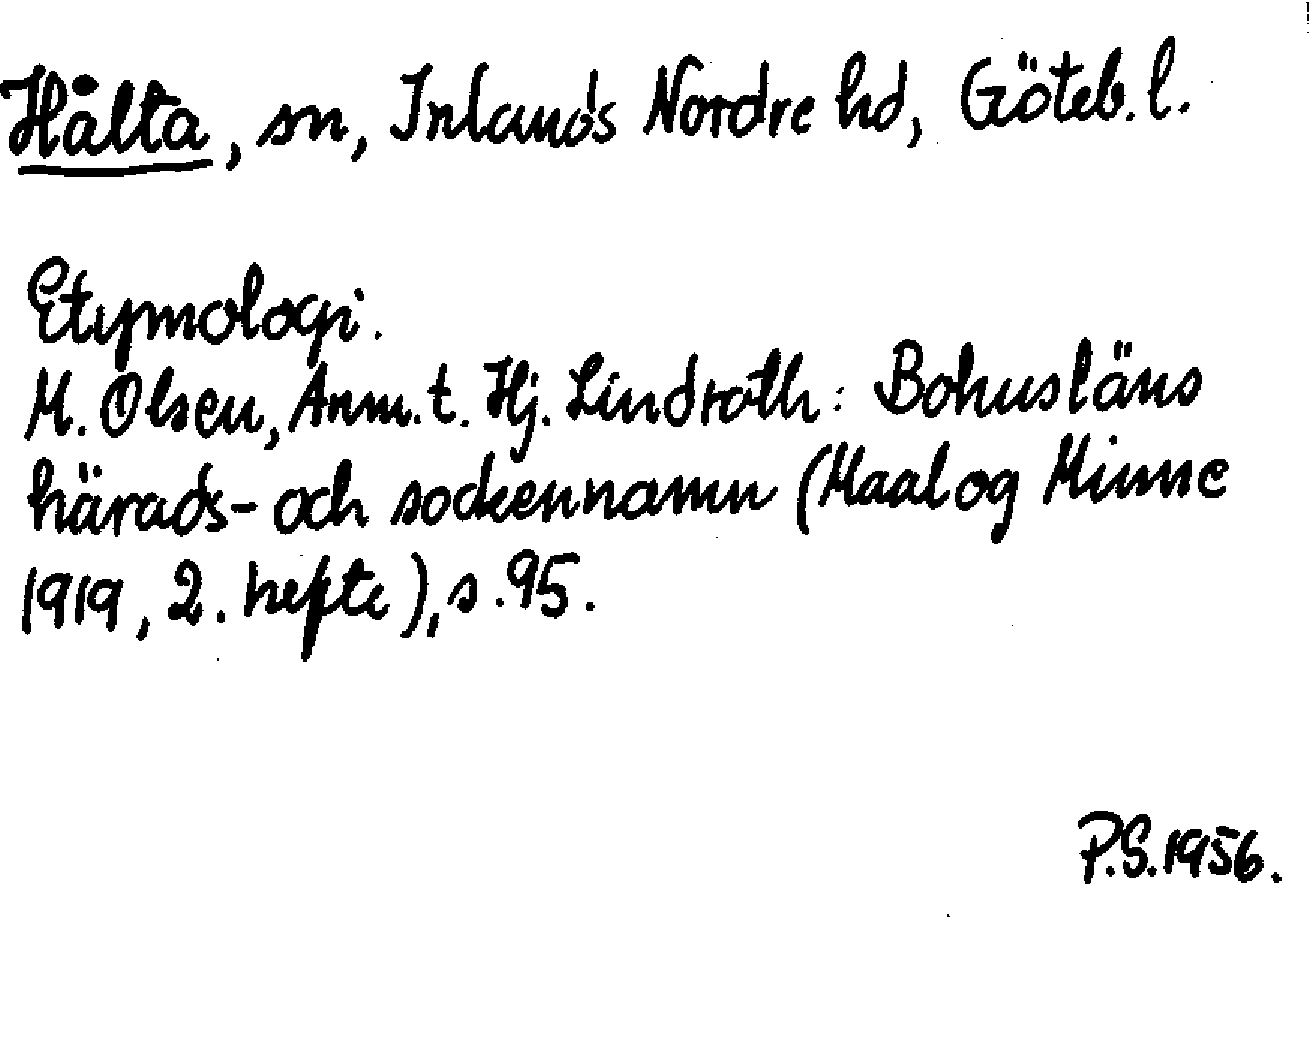 Hålta, sn, Inlands Nordre hd, Göteb. l.
Etymologi.
M. Olsen, Anm. t. Hj. Lindroth: Bohusläns
härads- och sockennamn (Maal og Minne
1919, 2. hefte), s. 95.
P.S. 1956.